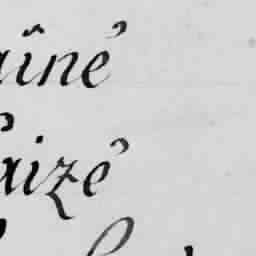 aîné
aizé